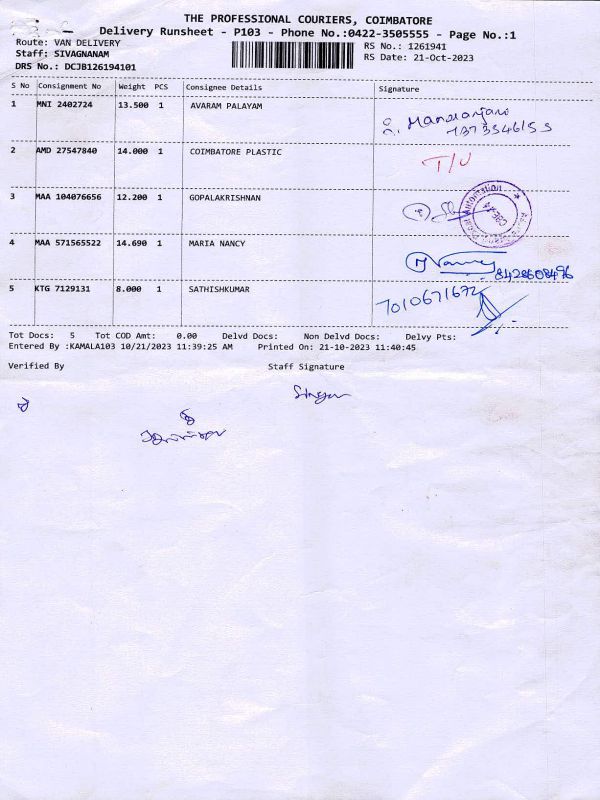 THE PROFESSIONAL COURIERS, COIMBATORE
Delivery Runsheet - P103 - Phone No.:0422-3505555 - Page No.:1
Route: VAN DELIVERY
Staff: SIVAGNANAM
DRS No.: DCJB126194101
RS No.: 1261941
RS Date: 21-Oct-2023
S No Consignment No Weight PCS Consignee Details Signature
1 MNI 2402724 13.500 1 AVARAM PALAYAM
2 AMD 27547840 14.000 1 COIMBATORE PLASTIC T/U
3 MAA 104076656 12.200 1 GOPALAKRISHNAN
4 MAA 571565522 14.690 1 MARIA NANCY Nancy 8428608496
5 KTG 7129131 8.000 1 SATHISHKUMAR 7010671672
Tot Docs: 5 Tot COD Amt: 0.00 Delvd Docs: Non Delvd Docs: Delvy Pts:
Entered By :KAMALA103 10/21/2023 11:39:25 AM Printed On: 21-10-2023 11:40:45
Verified By Staff Signature